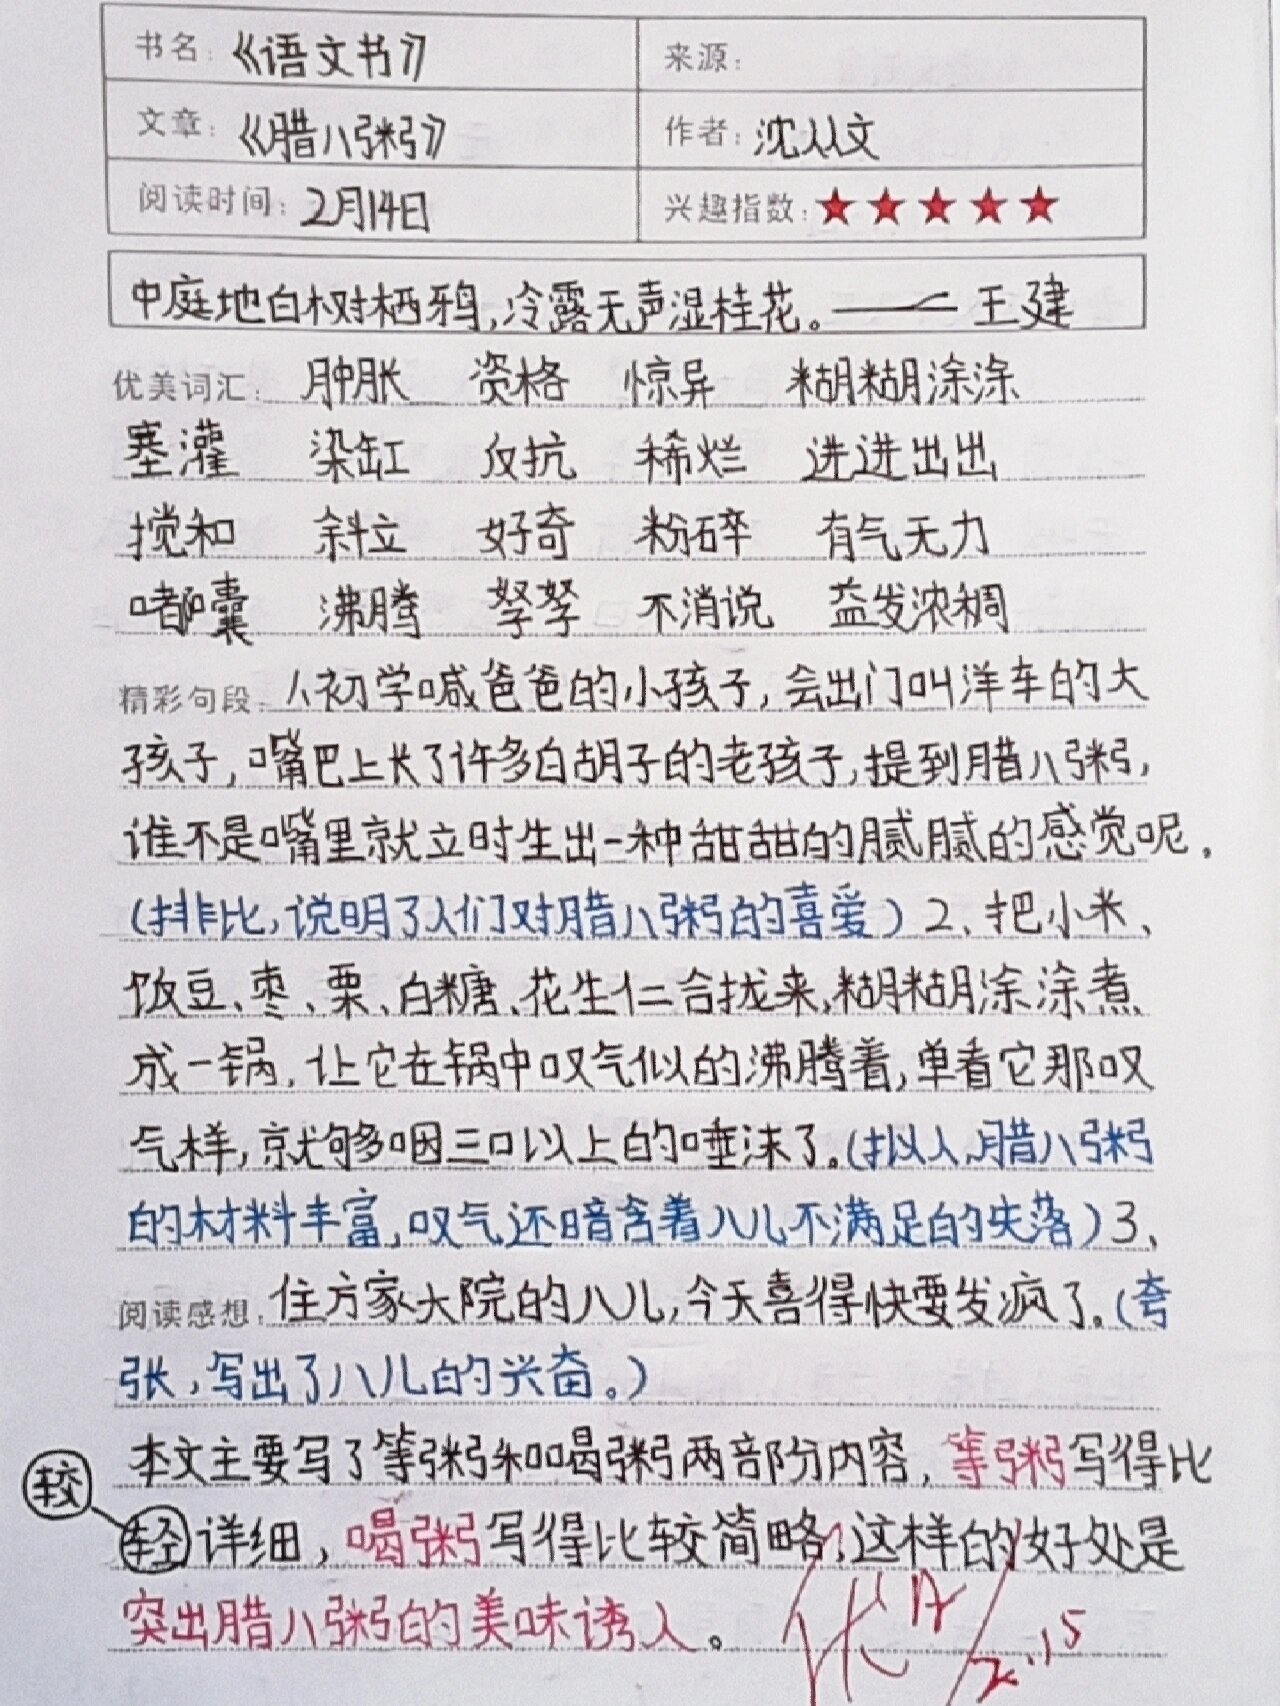 书名：《语文书》 来源：
文章：《腊八粥》 作者：沈从文
阅读时间：2月14日 兴趣指数：★★★★★
中庭地白树栖鸦，冷露无声湿桂花。——王建
优美词汇： 肿胀 资格 惊异 糊糊涂涂
塞灌 染缸 反抗 稀烂 进进出出
搅和 斜立 好奇 粉碎 有气无力
嘟囔 沸腾 孥孥 不消说 益发浓稠
精彩句段：1、初学喊爸爸的小孩子，会出门叫洋车的大
孩子，嘴巴上长了许多白胡子的老孩子，提到腊八粥，
谁不是嘴里就立时生出一种甜甜的腻腻的感觉呢。
（排比，说明了人们对腊八粥的喜爱）2、把小米、
饭豆、枣、栗、白糖、花生仁合拢来，糊糊涂涂煮
成一锅，让它在锅中叹气似的沸腾着，单看它那叹
气样，就够咽三口以上的唾沫了。（拟人，腊八粥
的材料丰富，叹气还暗含着八儿不满足的失落）3、
阅读感想：住方家大院的八儿，今天喜得快要发疯了。（夸
张，写出了八儿的兴奋。）
本文主要写了等粥和喝粥两部分内容，等粥写得比
较
轻详细，喝粥写得比较简略，这样的好处是
突出腊八粥的美味诱人。
优A
2.15